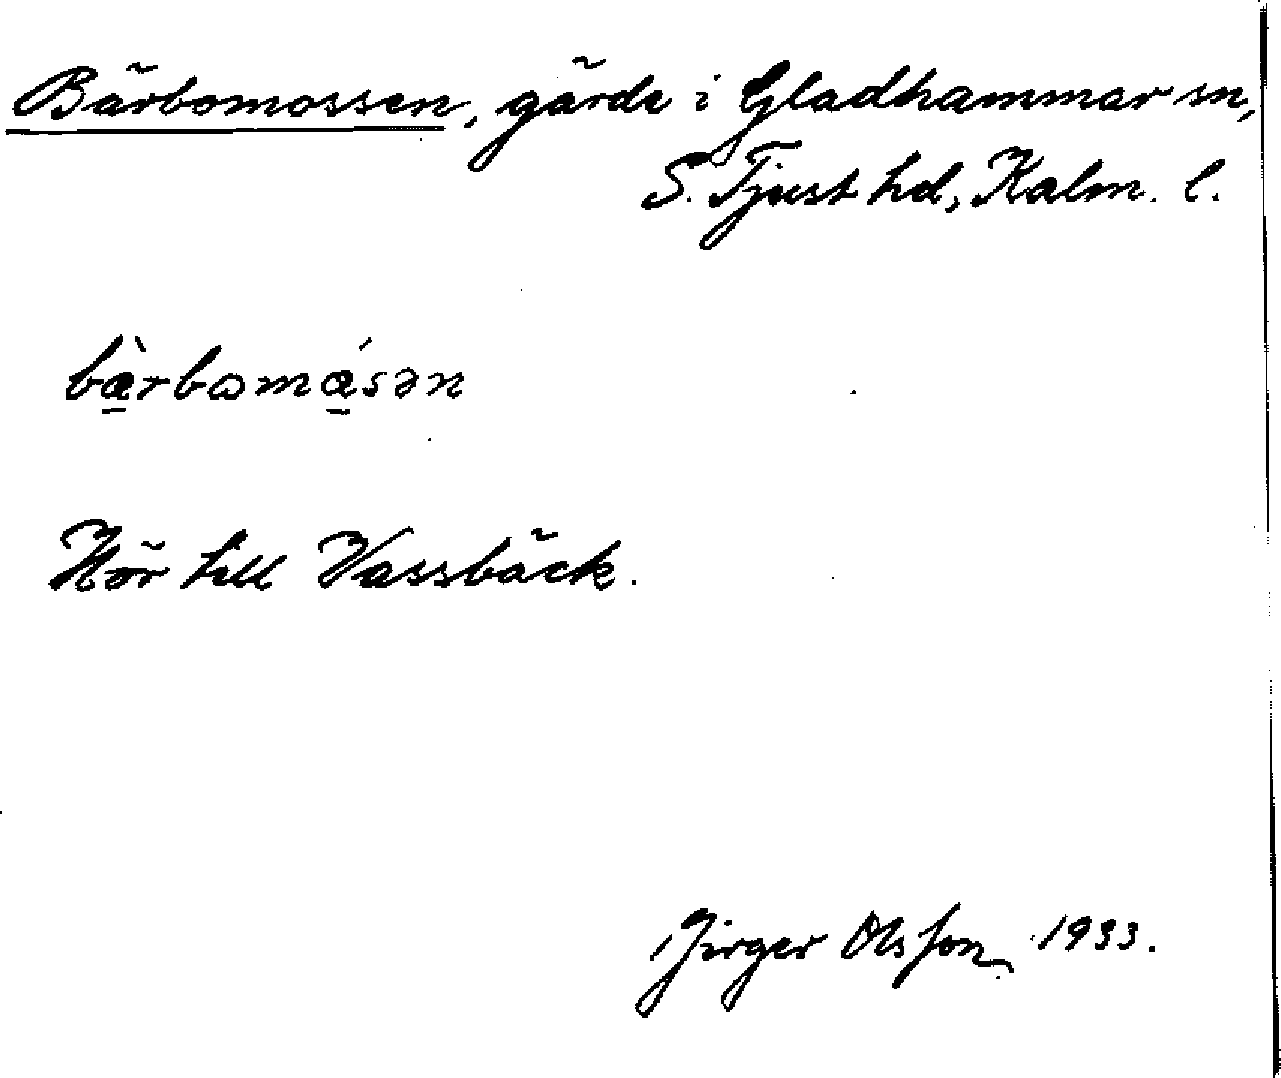 Bärbomossen, gärde i Gladhammar sn,
S. Tjust hd, Kalm. l.
bæ̱̀rbωmǽ̱sən
Hör till Vassbäck.
Birger Olsson 1933.